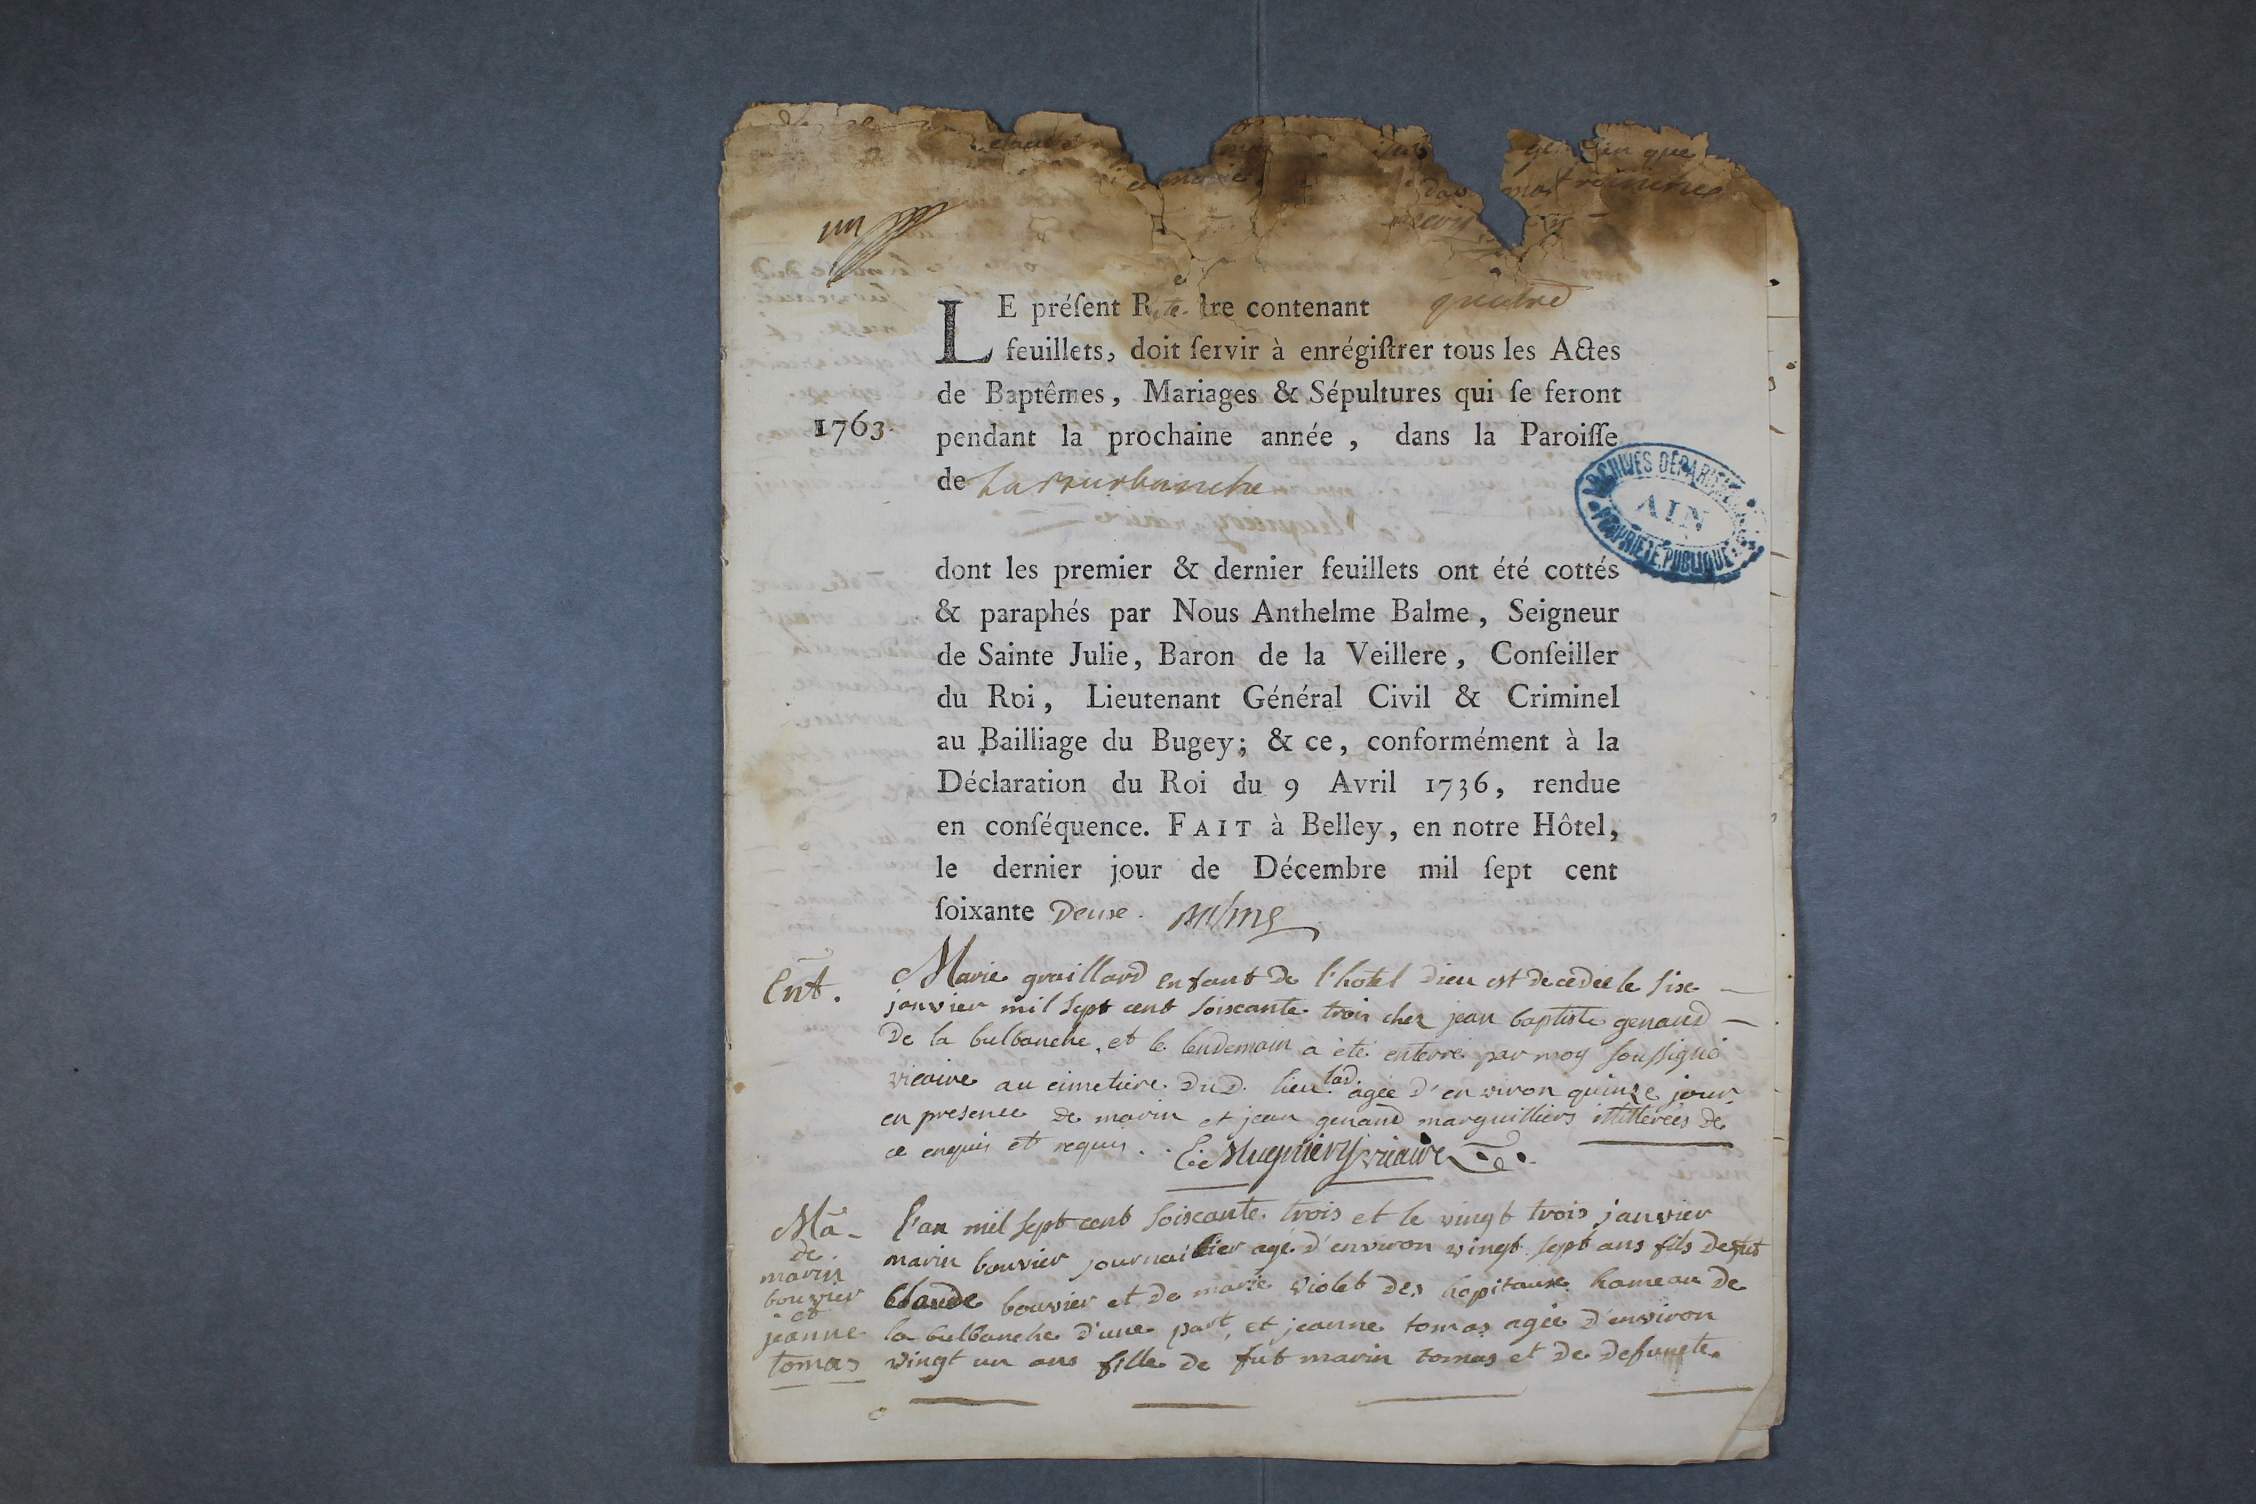 un
LE préſent R dre contenant quatre
feuillets, doit ſervir à enrégiſtrer tous les Actes
de Baptêmes, Mariages & Sépultures qui ſe feront
1763. pendant la prochaine année, dans la Paroiſſe
de
ARCHIVES DÉPARTEMENTALES
AIN
PROPRIÉTÉ PUBLIQUE
dont les premier & dernier feuillets ont été cottés
& paraphés par Nous Anthelme Balme, Seigneur
de Sainte Julie, Baron de la Veillere, Conſeiller
du Roi, Lieutenant Général Civil & Criminel
au Bailliage du Bugey; & ce, conformément à la
Déclaration du Roi du 9 Avril 1736, rendue
en conſéquence. FAIT à Belley, en notre Hôtel,
le dernier jour de Décembre mil ſept cent
ſoixante Deuxe. Balme
Ent. Marie graillard enfant de l'hotel dieu est decedée le six
janvier mil sept cent soixante trois chez jean baptiste genand
De la bulbanche, et le lendemain a été enterré par moy soussigné
vicaire au cimetiere dud. lieu lad. agée d'environ quinze jour
en presence de marin et jean genand marguilliers illitterées de
ce enquis et requis. C. Mugniery vicaire
Ma. L'an mil sept cent soixante trois et le vingt trois janvier
de marin bouvier journaillier agé d'environ vingt sept ans fils de fut
marin
bouvier Claude bouvier et de marie violet des hopitaux hameau de
et
jeanne la bulbanche d'une part, et jeanne tomas agée d'environ
tomas vingt un ans fille de fut marin tomas et de defuncte